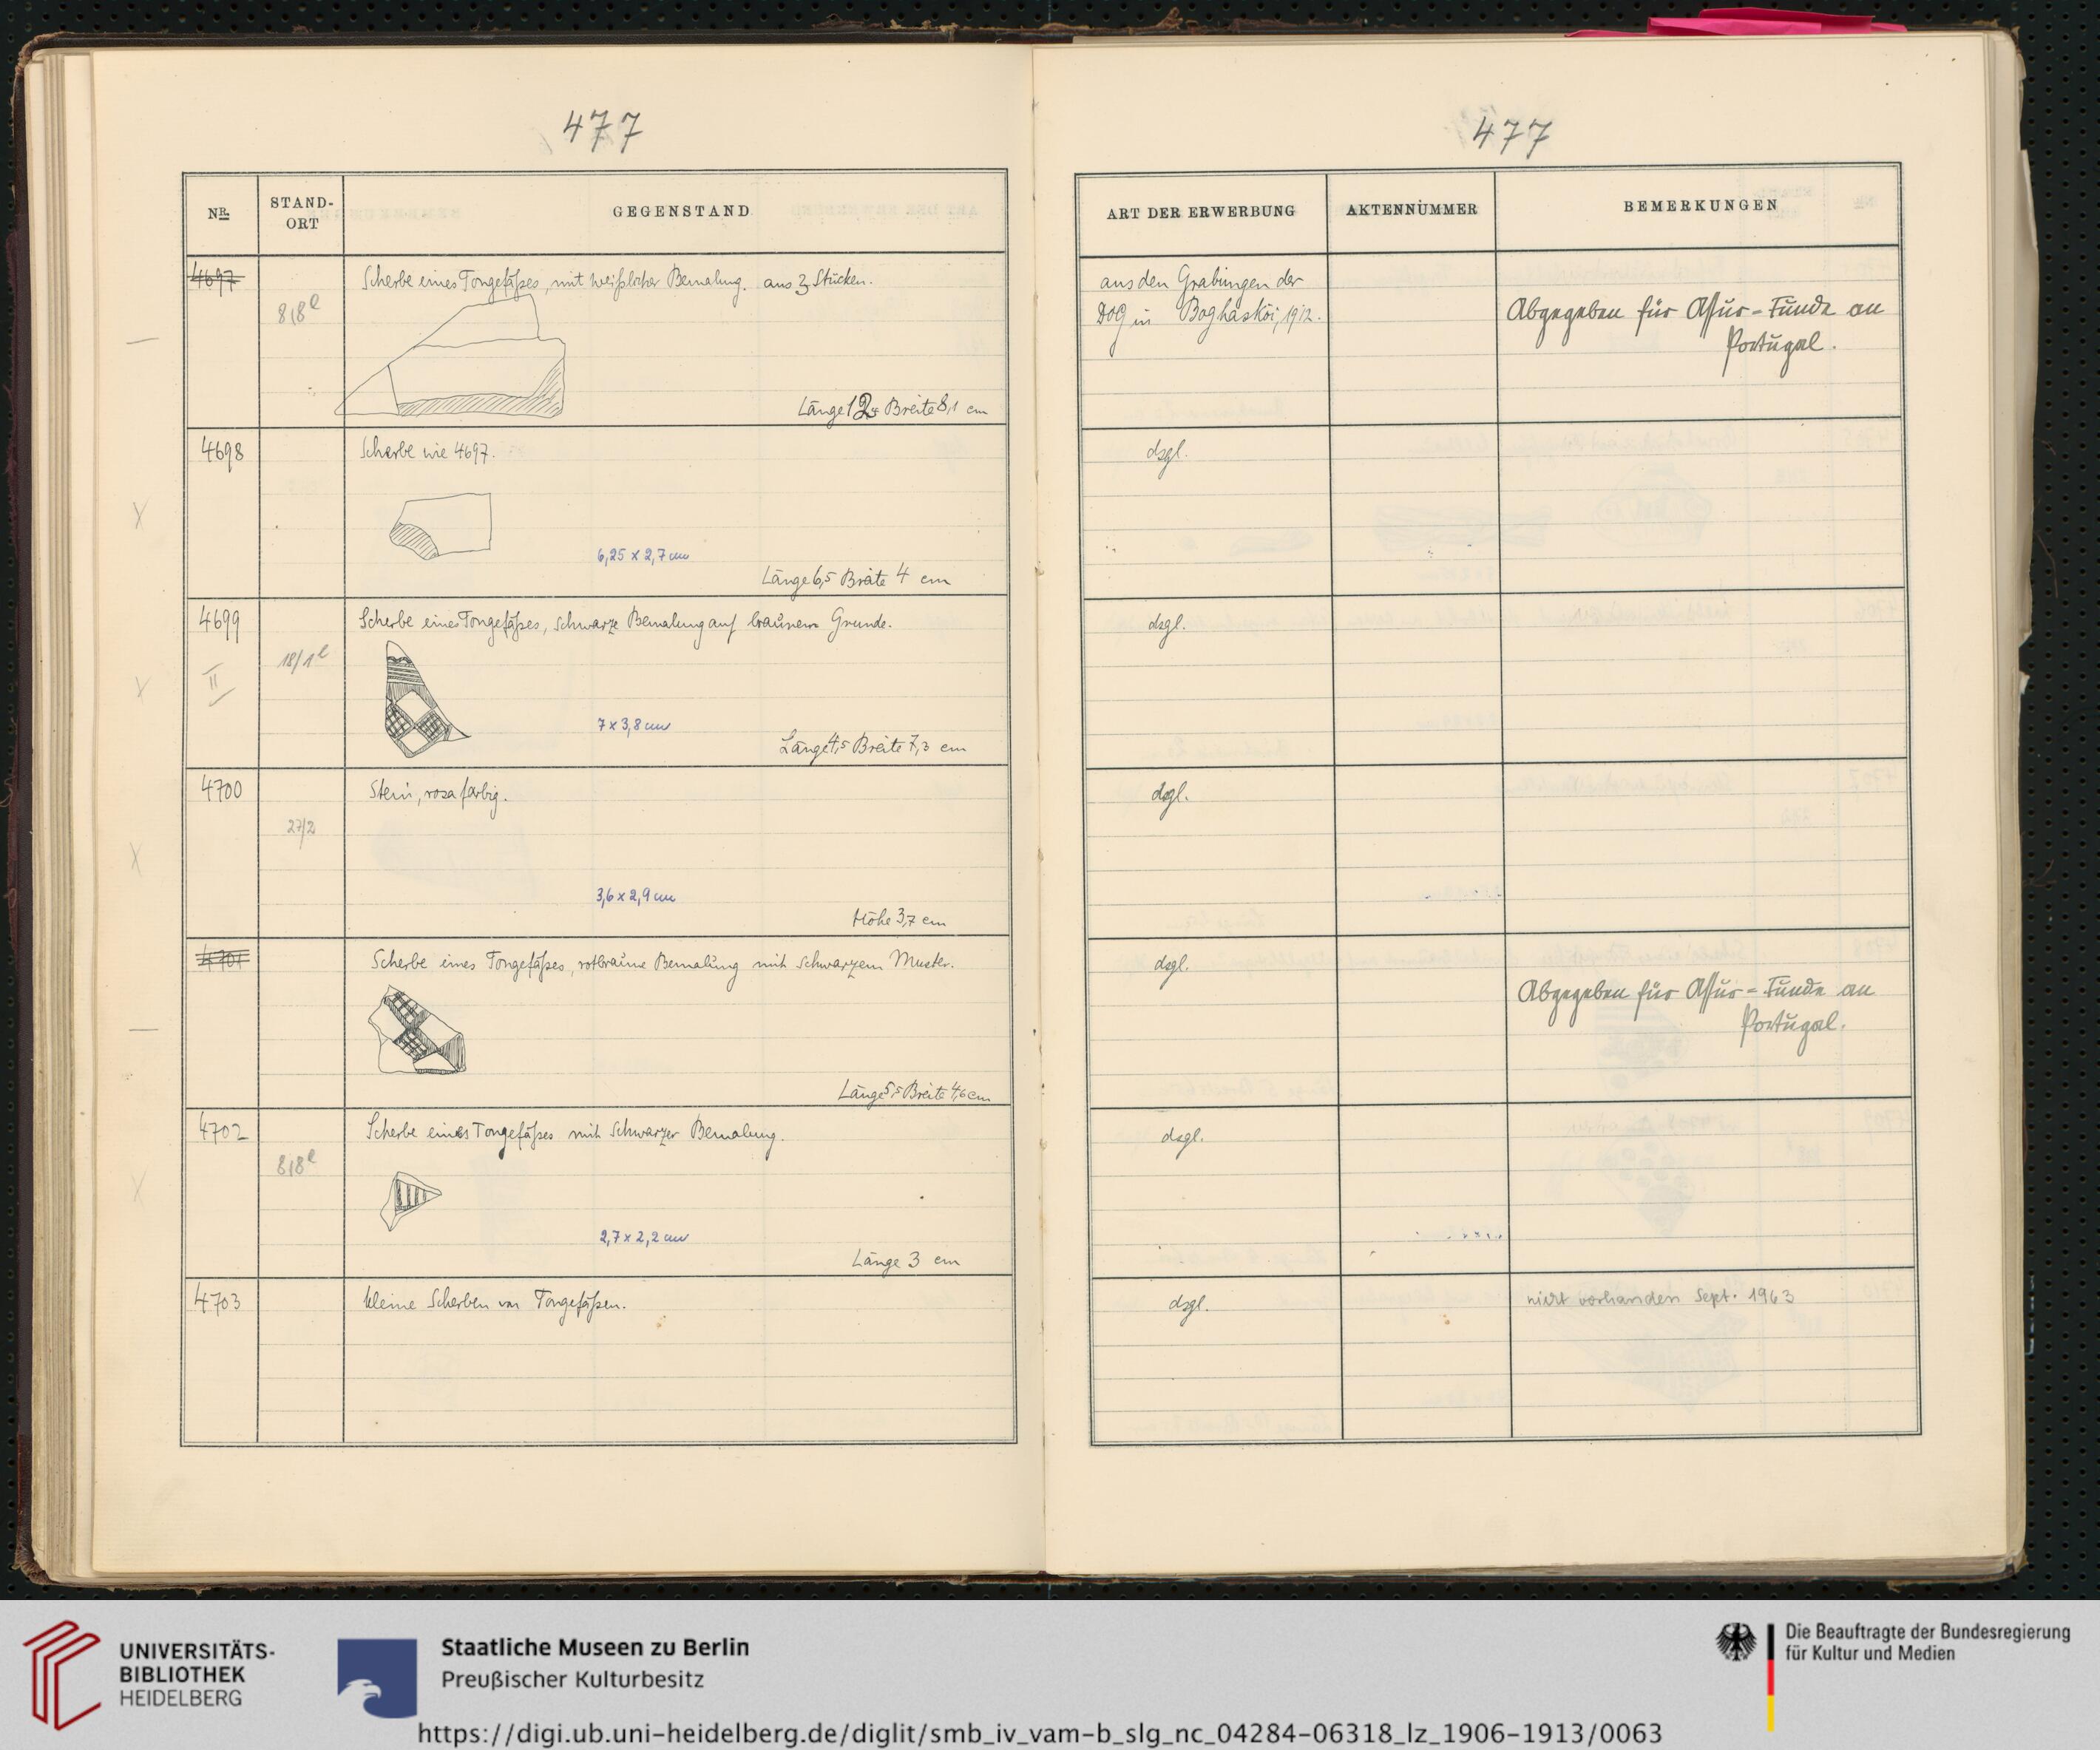 477
NR.
STAND-
ORT
GEGENSTAND
4697
8/8 e
Scherbe eines Tongefäßes, mit weißlicher Bemalung. aus 3 Stücken.
Länge 12 Breite 8,1 cm
4698
Scherbe wie 4697.
6,25 x 2,7 cm
Länge 6,5 Breite 4 cm
4699
II
18/1 e
Scherbe eines Tongefäßes, schwarze Bemalung auf braunem Grunde.
7 x 3,8 cm
Länge 4,5 Breite 7,3 cm
4700
27/2
Stein, rosafarbig.
3,6 x 2,9 cm
Höhe 3,7 cm
4701
Scherbe eines Tongefäßes, rotbraune Bemalung mit schwarzem Muster.
Länge 5,5 Breite 4,6 cm
4702
8/8 e
Scherbe eines Tongefäßes mit schwarzer Bemalung.
2,7 x 2,2 cm
Länge 3 cm
4703
kleine Scherben von Tongefäßen.
477
ART DER ERWERBUNG
AKTENNUMMER
BEMERKUNGEN
aus den Grabungen der
DOG in Boghasköi, 1912.
Abgegeben für Assur-Funde an
Portugal.
dsgl.
dsgl.
dsgl.
dsgl.
Abgegeben für Assur-Funde an
Portugal.
dsgl.
dsgl.
nicht vorhanden Sept. 1963
UNIVERSITÄTS-
BIBLIOTHEK
HEIDELBERG
Staatliche Museen zu Berlin
Preußischer Kulturbesitz
Die Beauftragte der Bundesregierung
für Kultur und Medien
https://digi.ub.uni-heidelberg.de/diglit/smb_iv_vam-b_slg_nc_04284-06318_lz_1906-1913/0063